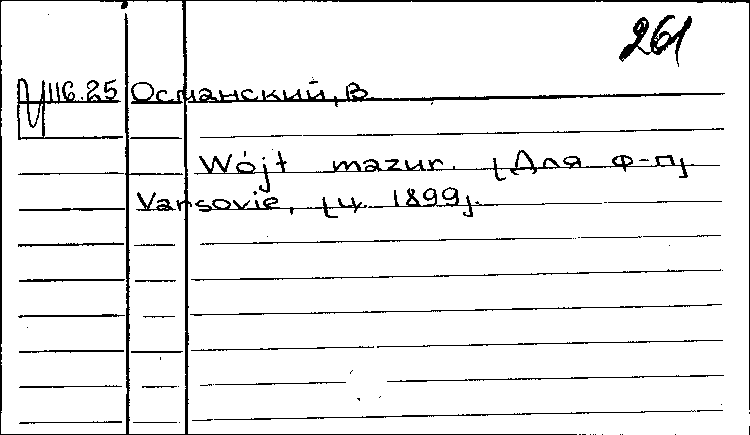 261
Ц 116.25 Османский, В.
Wójt mazur. [Для ф-п].
Varsovie, [ц. 1899].